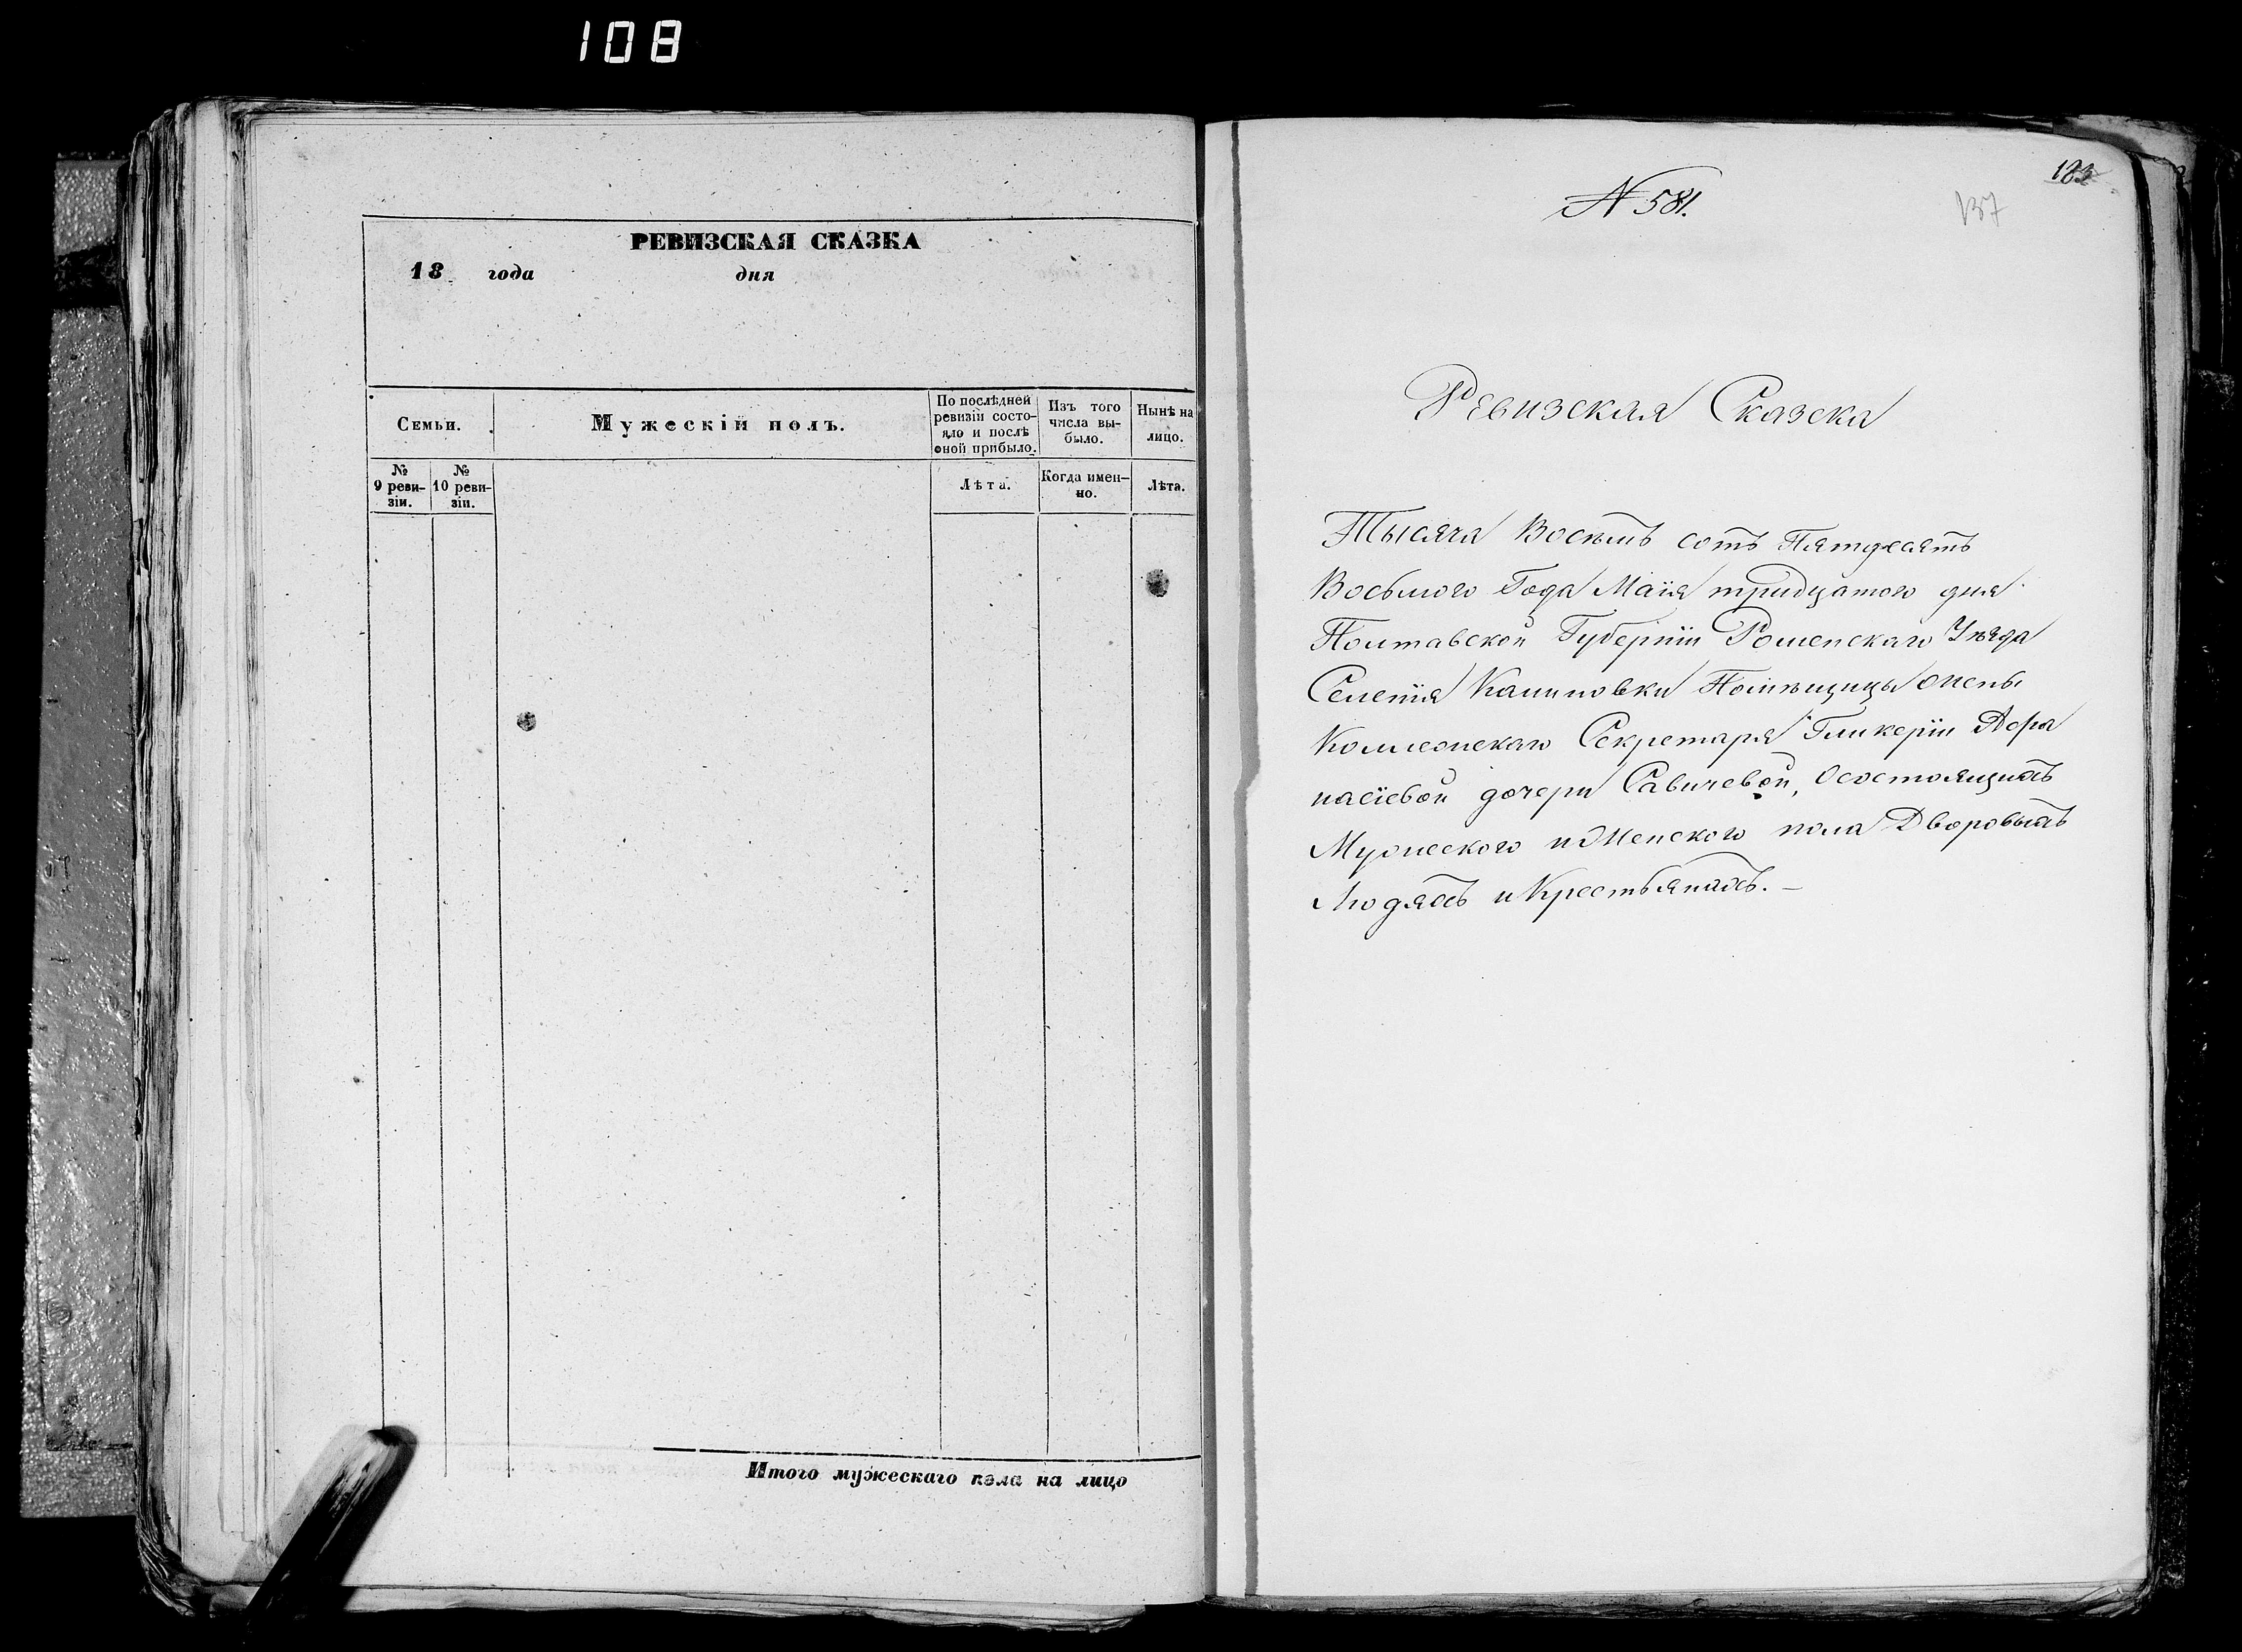 108
РЕВИЗСКАЯ СКАЗКА
18 года дня
Семьи.
Мужескій полъ.
По послѣдней
ревизіи состо-
яло и послѣ
оной прибыло.
Изъ того
числа вы-
было.
Нынѣ на
лицо.
№
9 реви-
зіи.
№
10 реви-
зіи.
Лѣта.
Когда имен-
но.
Лѣта.
Итого мужескаго пола на лицо
N 581.
137
Ревизская Сказска
Тысяча Восѣмъ сотъ Пятдесятъ
Восьмого Года Маія тридцатого дня
Полтавской Губерніи Роменскаго Уѣзда
Селенія Калиновки Помѣщицы Жены
Коллежскаго Секретаря Гликеріи Афа
насіевой дочери Савичевой, Осостоящихъ
Мужеского и Женского пола Дворовыхъ
Людяхъ и Крестьянахъ. —